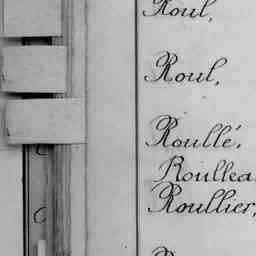 Roul,
Roul,
Roullé,
Roullea
Roullier,